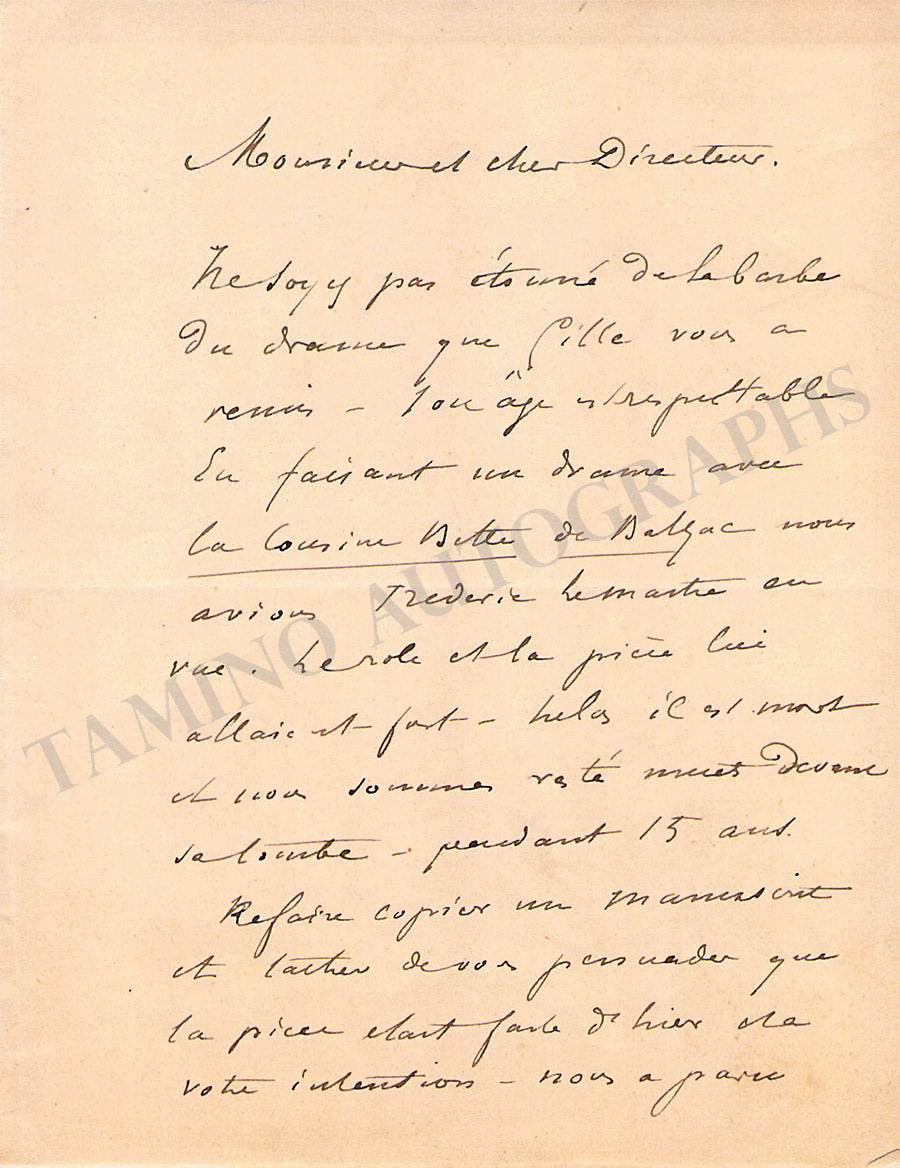 Monsieur et cher Directeur.
Ne soyez pas étonné de la barbe
Du drame que Gille vous a
remis – Son âge est respectable
En faisant un drame avec
la Cousine Bette de Balzac nous
avions Frederic Lemaitre en
vue. Le role et la pièce lui
allaient fort – helas il est mort
et nous sommes resté muets devant
sa tombe – pendant 15 ans.
Refaire copier un manuscrit
et tacher de vous persuader que
la piece etait faite d'hier et a
votre intention – nous a paru
TAMINO AUTOGRAPHS